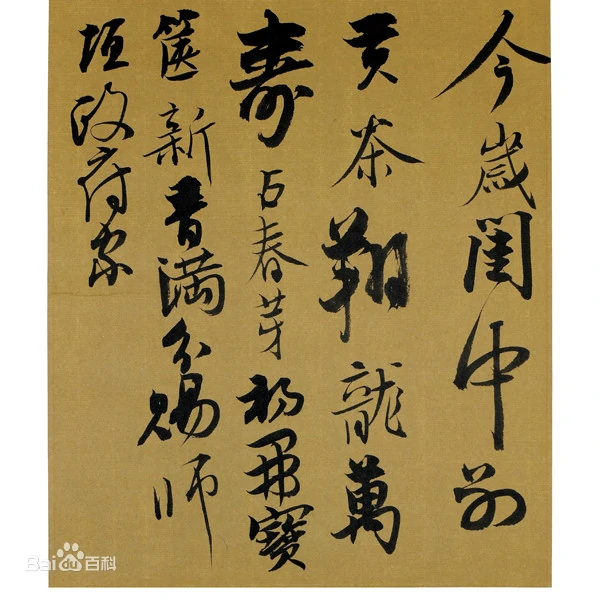 今歲閩中別
貢茶翔龍萬
壽占春芽初開寶
篋新香滿分賜師
垣政府家
Bai百科